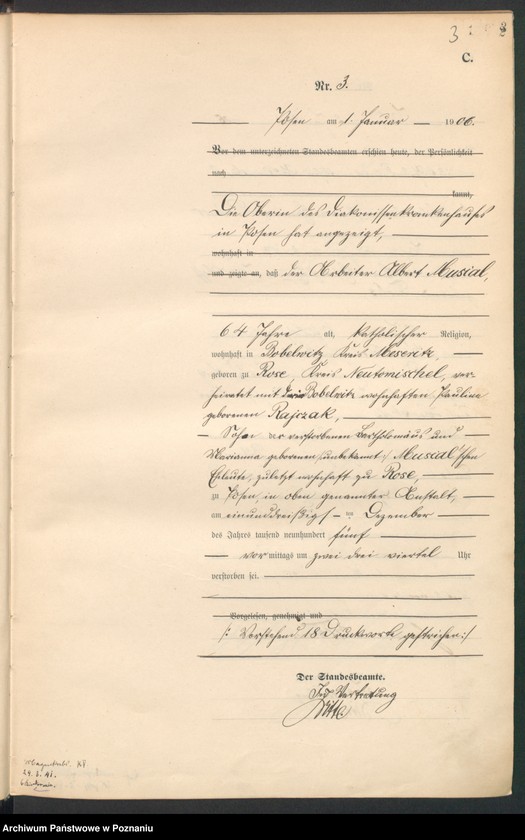 3
C.
Nr. 3.
Posen am 1. Januar 1906.
Vor dem unterzeichneten Standesbeamten erschien heute, der Persönlichkeit
nach
kannt,
Die Oberin des Diakonissenkrankenhauses
in Posen hat angezeigt,
wohnhaft in
und zeigte an, daß der Arbeiter Albert Musial,
64 Jahre alt, katholischer Religion,
wohnhaft in Bobelwitz Kreis Meseritz,
geboren zu Rose, Kreis Neutomischel, ver-
heiratet mit der in Bobelwitz wohnhaften Pauline
geborenen Rajczak,
Sohn der verstorbenen Bartholomäus und
Marianna geborenen (:unbekannt:) Musial'schen
Eheleute, zuletzt wohnhaft zu Rose,
zu Posen, in oben genannter Anstalt,
am einunddreißigsten Dezember
des Jahres tausend neunhundert fünf
vormittags um zwei drei viertel Uhr
verstorben sei.
Vorgelesen, genehmigt und
/: Vorstehend 18 Druckworte gestrichen :/
Der Standesbeamte.
In Vertretung
Archiwum Państwowe w Poznaniu